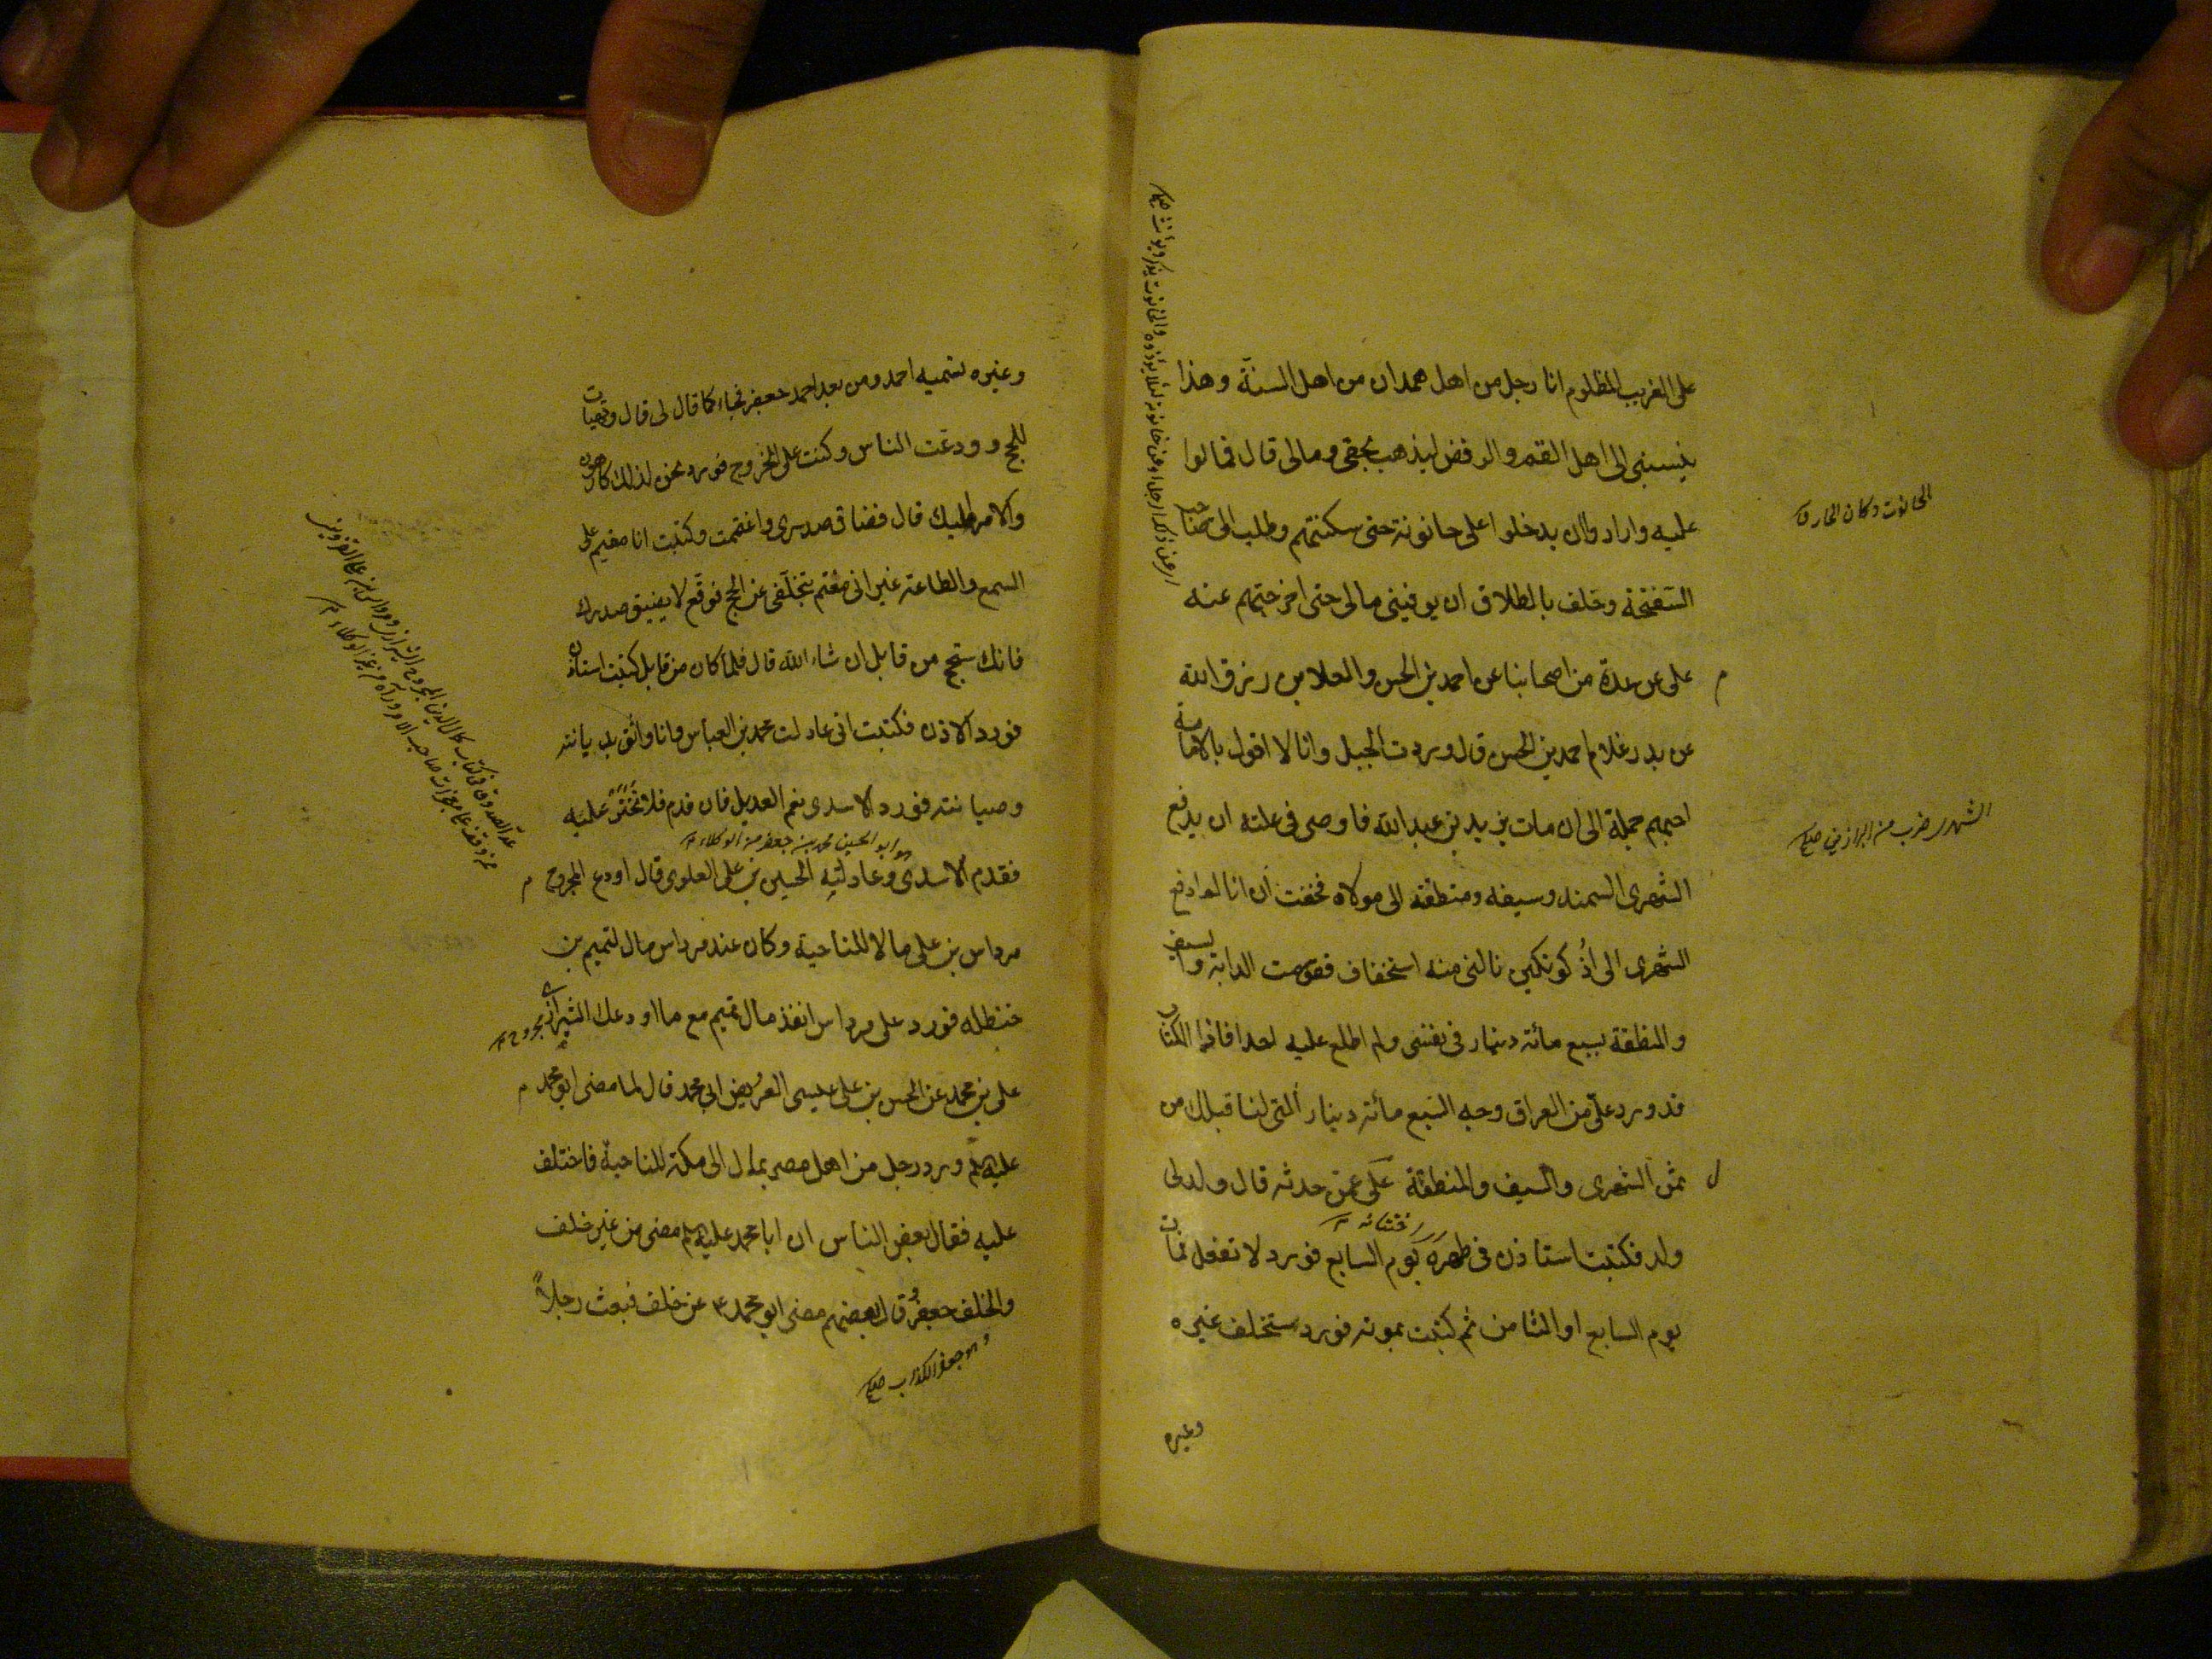 على الغريب المظلوم انا رجل من اهل همدان من اهل السنة وهذا
ينسبنى الى اهل القم والرفض ليذهب بحقى ومالى قال فمالوا
عليه وارادوا ان يدخلوا على حانوته حتى سكنتهم وطلب الى صاحب
السفتجة وحلف بالطلاق ان يوفينى مالى حتى اخرجتهم عنه
على عن عدة من اصحابنا عن احمد بن الحسن والعلا بن رزق الله
عن بدر غلام احمد بن الحسن قال وردت الجبل وانا لا اقول بالامامة
احبهم جملة الى ان مات يزيد بن عبد الله فاوصى فى علته ان يدفع
الشهرى السمند وسيفه ومنطقته الى مولاه فخفت ان انا لم ادفع
الشهرى الى اذكوتكين نالنى منه استخفاف فقومت الدابة والسيف
والمنطقة بسبع مائة دينار فى نفسى ولم اطلع عليه احدا فاذا الكتاب
قد ورد على من العراق وجه السبع مائة دينار التى لنا قبلك من
ثمن الشهرى والسيف والمنطقة على عمن حدثه قال ولد لى
ولد فكتبت استاذن فى طهره يوم السابع فورد لا تفعل فمات
يوم السابع او الثامن ثم كتبت بموته فورد ستخلف غيره
وغيره
الحانوت دكان الخمار ق
الشهرى ضرب من البراذين صحاح
وغيره تسميه احمد ومن بعد احمد جعفر فجاء كما قال لى قال وتهيات
للحج وودعت الناس وكنت على الخروج فورد نحن لذلك كارهون
والامر اليك قال فضاق صدرى واغتممت وكتبت انا مقيم على
السمع والطاعة غير انى مغتم بتخلفى عن الحج فوقع لا يضيق صدرك
فانك ستحج من قابل ان شاء الله قال فلما كان من قابل كتبت استاذن
فورد الاذن فكتبت انى عادلت محمد بن العباس وانا واثق بديانته
وصيانته فورد الاسدى نعم العديل فان قدم فلا تختر عليه
هو ابو الحسين محمد بن جعفر من الوكلاء
فقدم الاسدى وعادلته الحسين بن على العلوى قال اودع المجروح
مرداس بن على مالا للناحية وكان عند مرداس مال لتميم بن
حنظله فورد على مرداس انفذ مال تميم مع ما اودعك الشيرازى
على بن محمد عن الحسن بن على عيسى العريض ابى محمد قال لما مضى ابو محمد
عليه السلم ورد رجل من اهل مصر بمال الى مكة للناحية فاختلف
عليه فقال بعض الناس ان ابا محمد عليه السلم مضى من غير خلف
والخلف جعفر وقال بعضهم مضى ابو محمد ع عن خلف فبعث رجلا
هو جعفر الكذاب